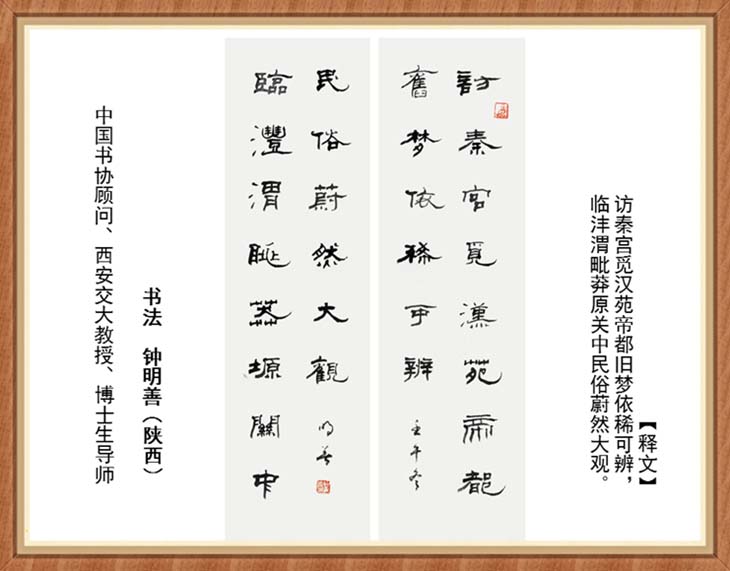 【释文】
访秦宫觅汉苑帝都旧梦依稀可辨，
临沣渭毗莽原关中民俗蔚然大观。
訪秦宮覓漢苑帝都
舊梦依稀可辨
壬午冬
臨灃渭眺莽塬關中
民俗蔚然大觀
明善
书法 钟明善（陕西）
中国书协顾问、西安交大教授、博士生导师